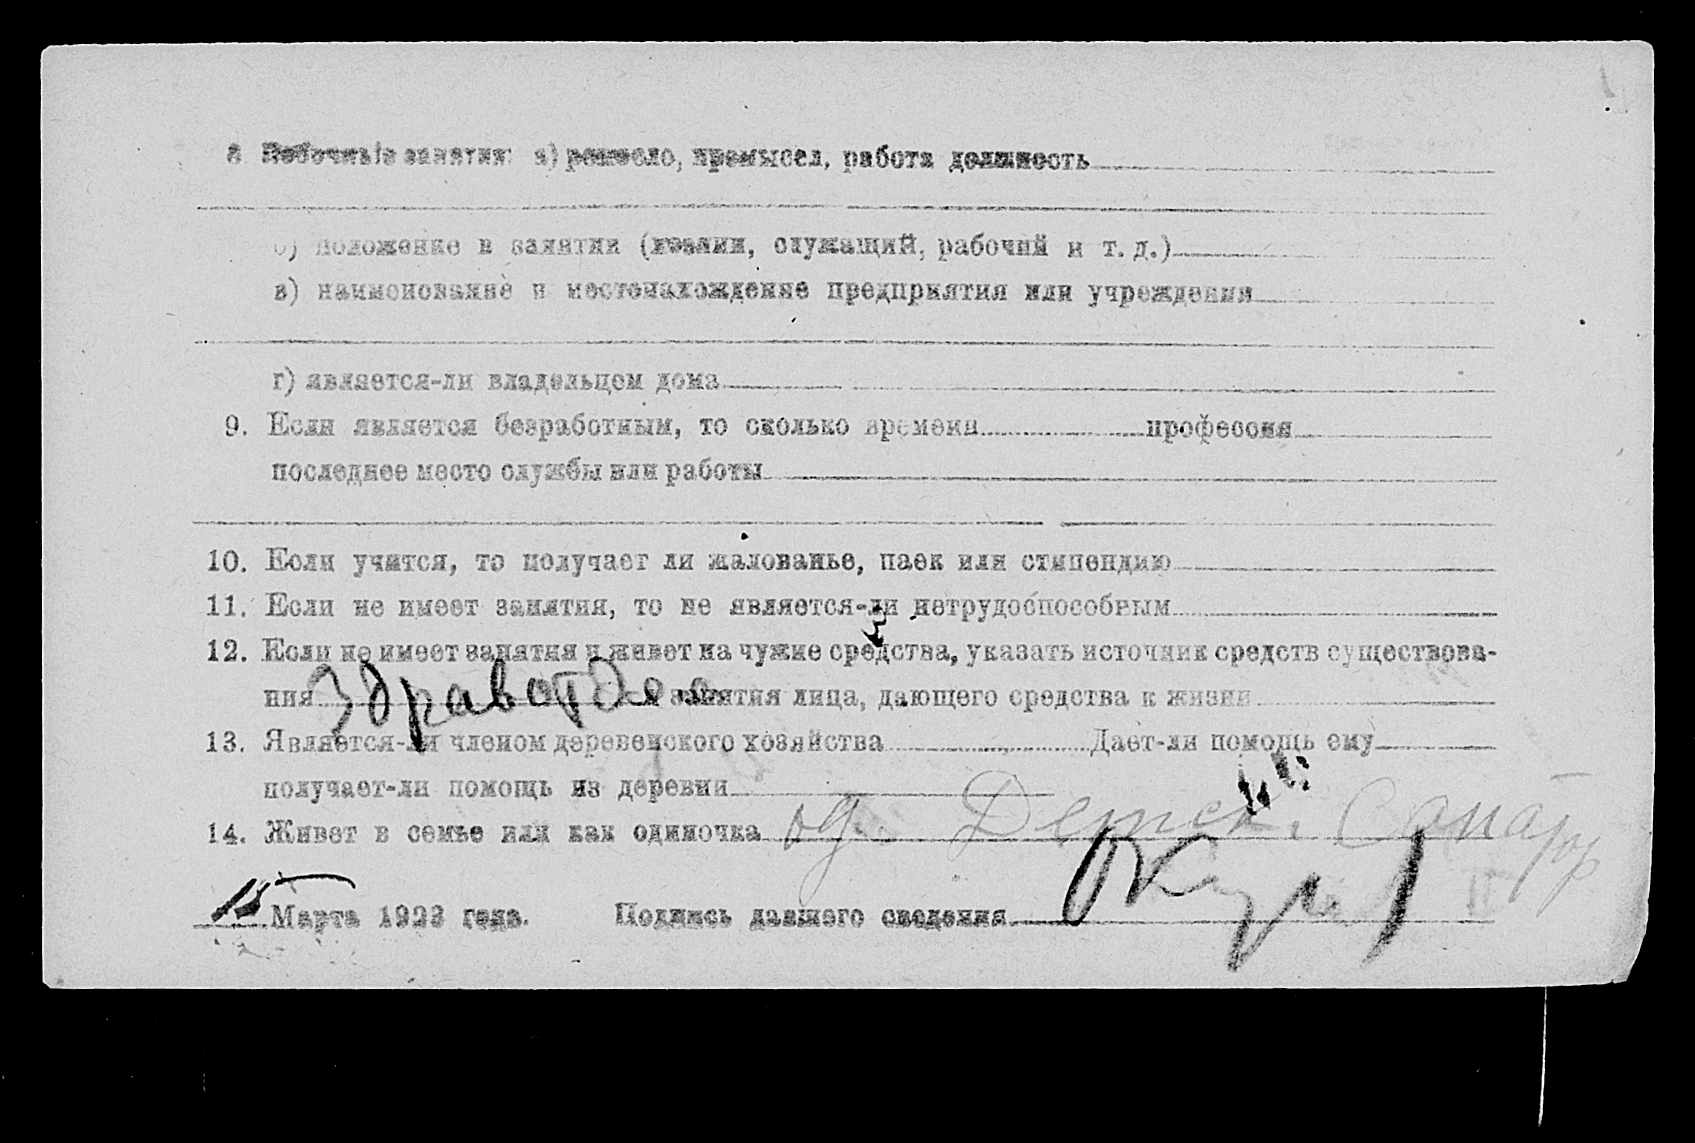 8. Побочныя занятия: а) ремесло, промысел, работа должность
б) положение в занятии (хозяин, служащий, рабочий и т. д.)
в) наименование и местонахождение предприятия или учреждения
г) является-ли владельцем дома
9. Если является безработным, то сколько времени профессия
последнее место службы или работы
10. Если учится, то получает ли жалованье, паек или стипендию
11. Если не имеет занятия, то не является-ли нетрудоспособным
12. Если не имеет занятия и живет на чужие средства, указать источник средств существова-
ния Здравотдел занятия лица, дающего средства к жизни
13. Является-ли членом деревенского хозяйства Дает-ли помощь ему
получает-ли помощь из деревни
14. Живет в семье или как одиночка од. Детск. Санатор
15 Марта 1923 года. Подпись давшего сведения